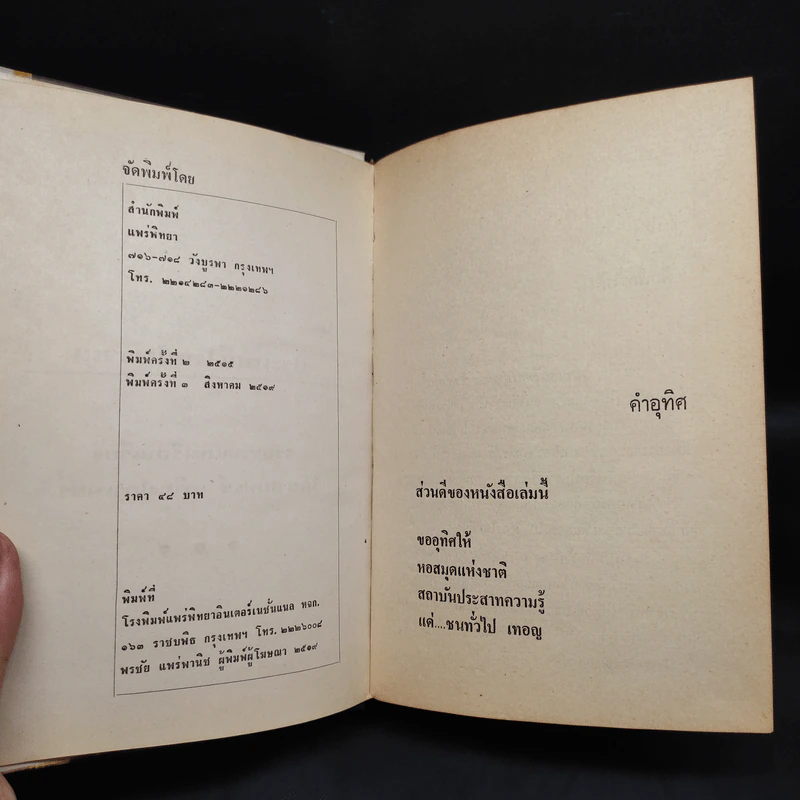 จัดพิมพ์โดย
สำนักพิมพ์
แพร่พิทยา
๗๑๖-๗๑๘ วังบูรพา กรุงเทพฯ
โทร. ๒๒๑๔๒๘๓-๒๒๒๑๒๘๖
พิมพ์ครั้งที่ ๒ ๒๕๑๕
พิมพ์ครั้งที่ ๓ สิงหาคม ๒๕๑๙
ราคา ๔๘ บาท
พิมพ์ที่
โรงพิมพ์แพร่พิทยาอินเตอร์เนชั่นแนล หจก.
๑๖๓ ราชบพิธ กรุงเทพฯ โทร. ๒๒๒๖๐๐๘
พรชัย แพร่พานิช ผู้พิมพ์ผู้โฆษณา ๒๕๑๙
คำอุทิศ
ส่วนดีของหนังสือเล่มนี้
ขออุทิศให้
หอสมุดแห่งชาติ
สถาบันประสาทความรู้
แด่....ชนทั่วไป เทอญ